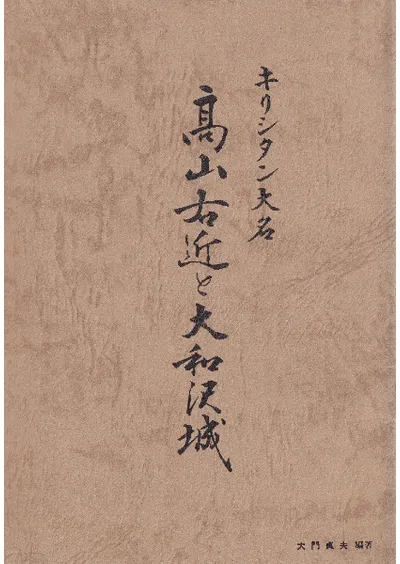 キリシタン大名
髙山右近と大和沢城
大門貞夫 編著